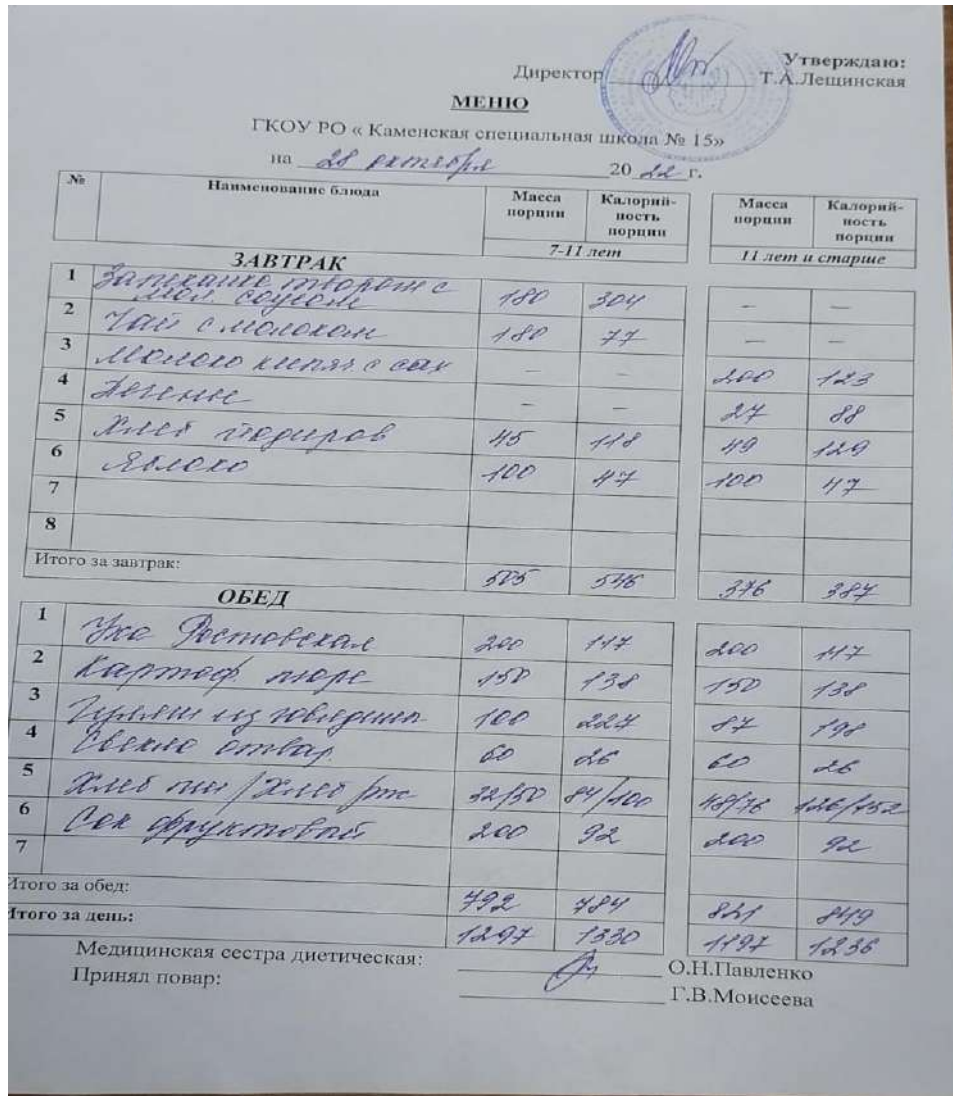 Утверждаю:
Директор Т.А.Лещинская
МЕНЮ
ГКОУ РО « Каменская специальная школа № 15»
на 28 октября 2022 г.
№ Наименование блюда Масса порции Калорий-ность порции Масса порции Калорий-ность порции
7-11 лет 11 лет и старше
ЗАВТРАК
1 Запеканка творожн с мол. соусом 180 304 — —
2 Чай с молоком 180 77 — —
3 Молоко кипяч. с сах — — 200 123
4 Печенье — — 27 88
5 Хлеб йодиров 45 118 49 129
6 Яблоко 100 47 100 47
7
8
Итого за завтрак: 505 546 376 387
ОБЕД
1 Уха Ростовская 200 117 200 117
2 Картоф. пюре 150 138 150 138
3 Гуляш из говядины 100 227 87 198
4 Свекла отвар. 60 26 60 26
5 Хлеб пш/Хлеб рж 32/50 84/100 48/76 126/152
6 Сок фруктовый 200 92 200 92
7
Итого за обед: 792 784 821 849
Итого за день: 1297 1330 1197 1236
Медицинская сестра диетическая: О.Н.Павленко
Принял повар: Г.В.Моисеева